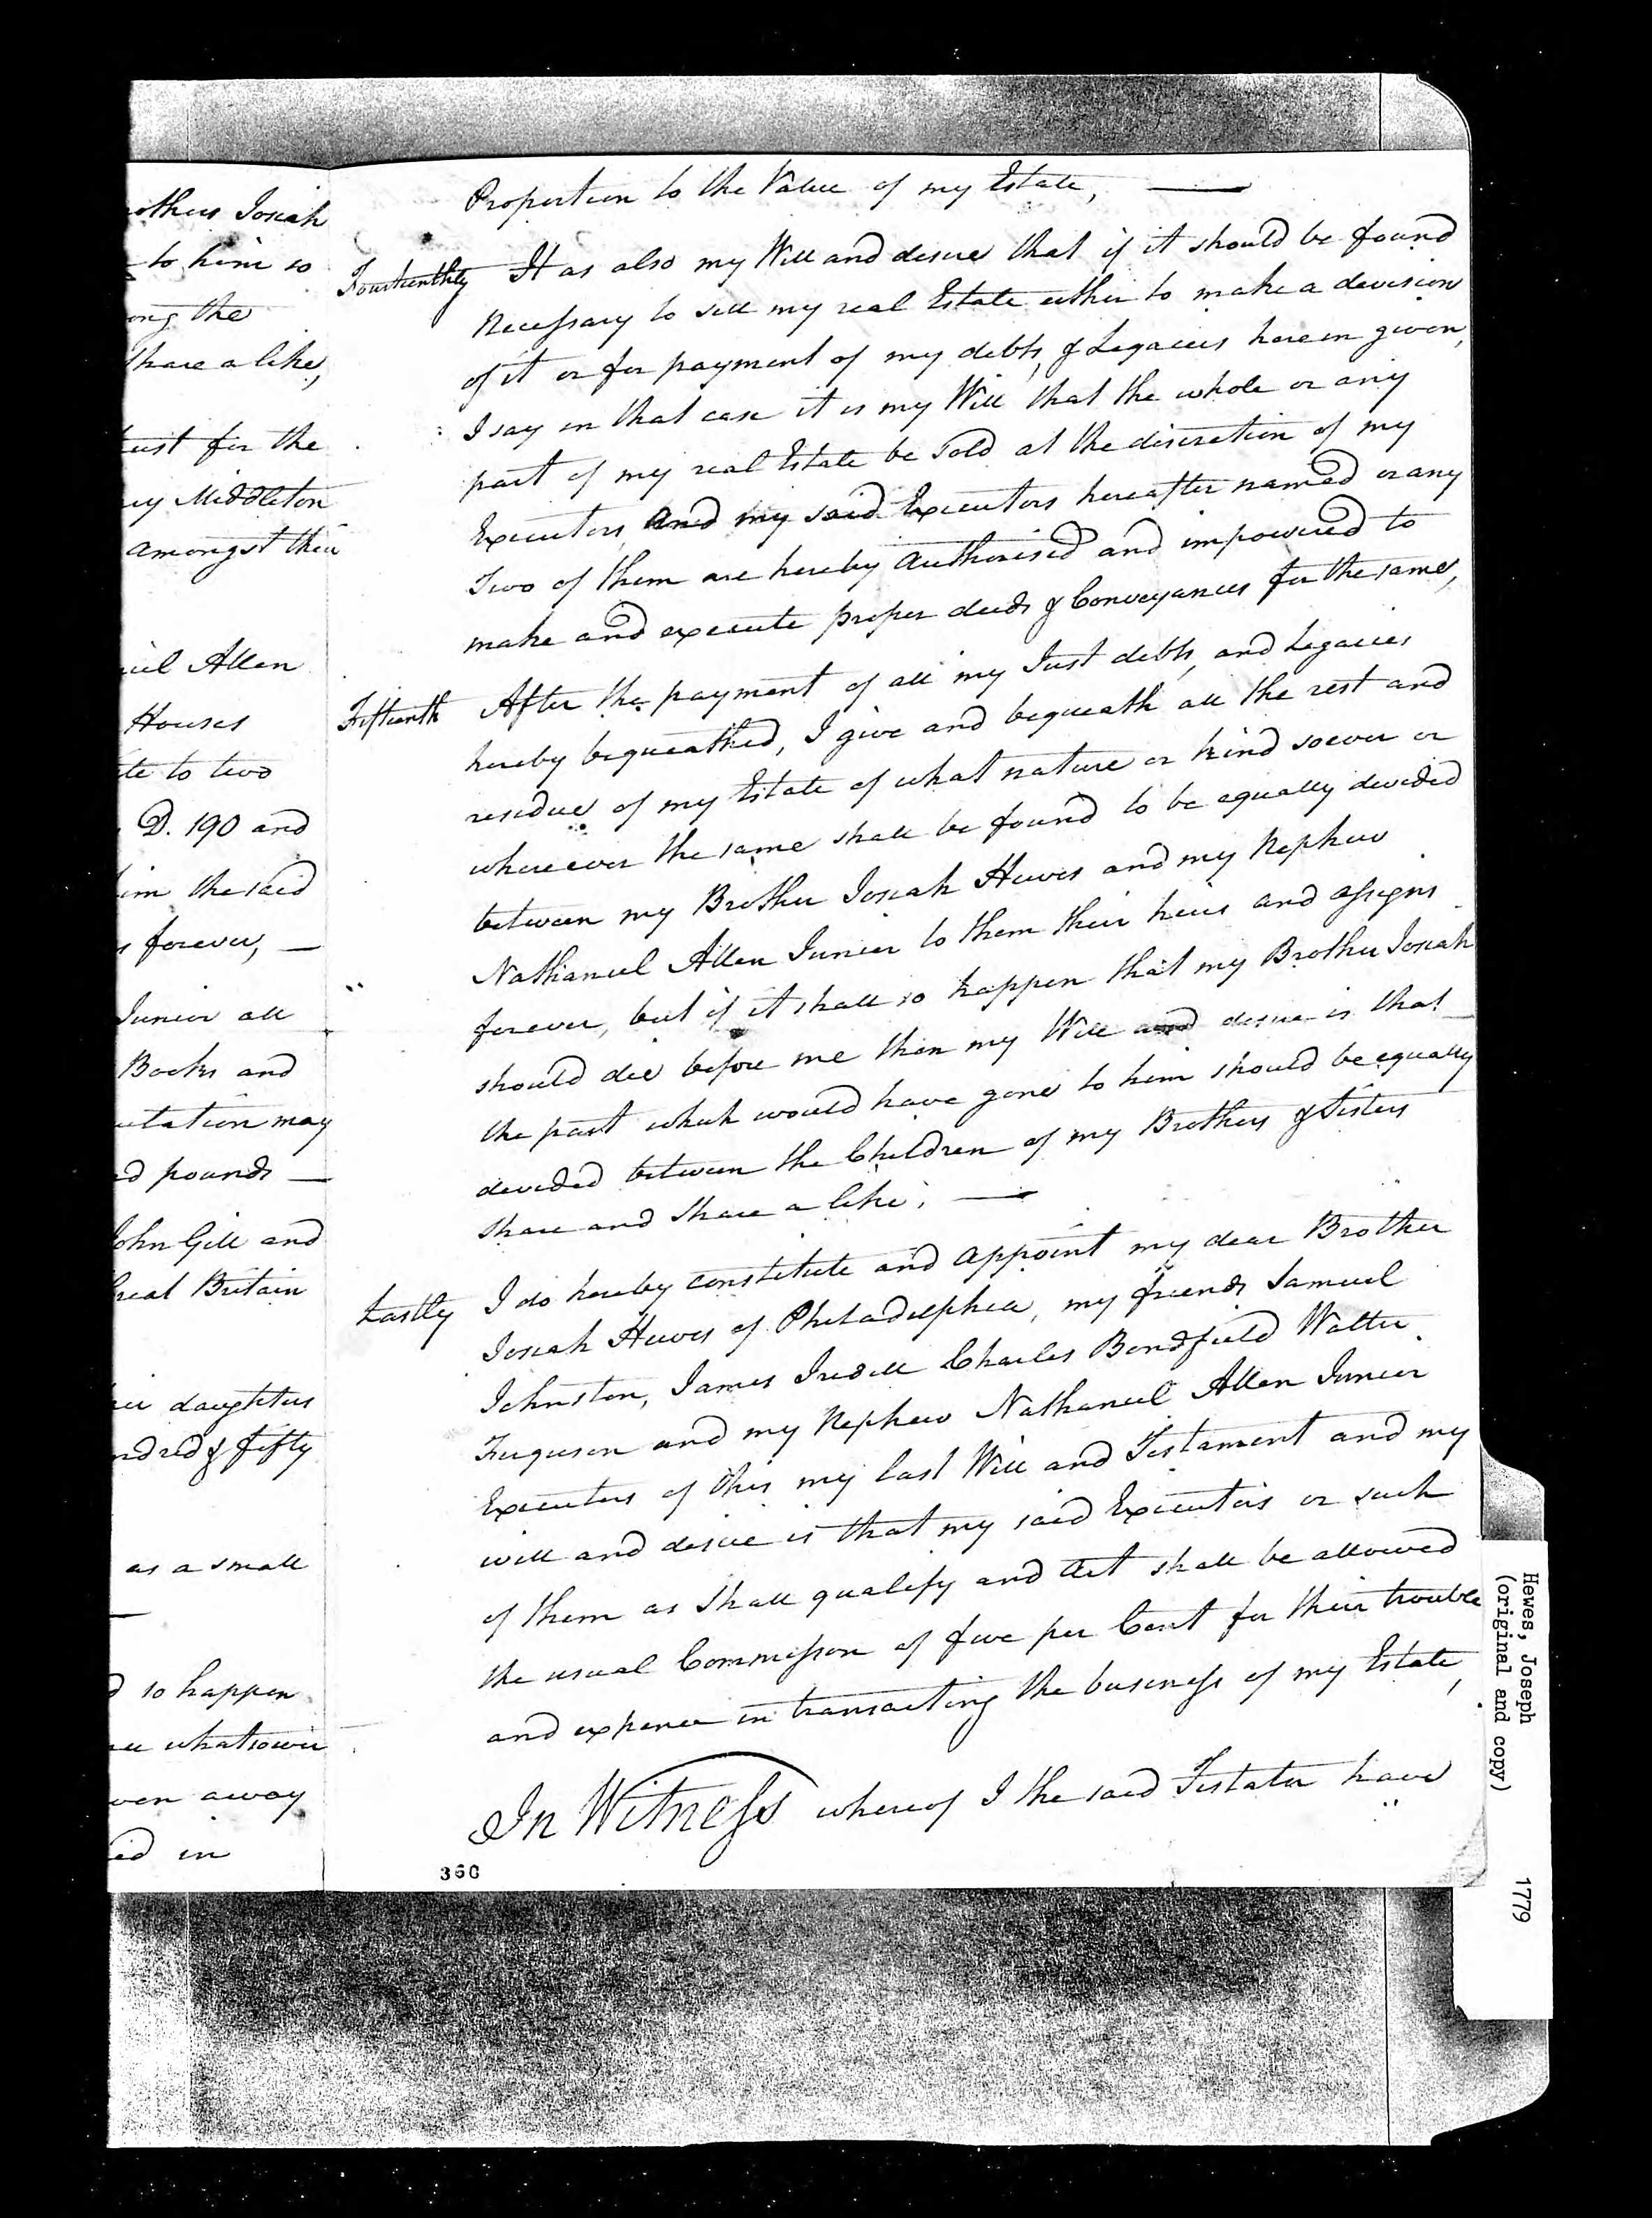 others Josiah
to him so
ong the
share a like,
ust for the
ey Middleton
amongst their
iel Allen
Houses
te to two
D. 190 and
im the said
s forever, —
Junior all
Books and
utation may
d pounds —
John Gill and
Great Britain
daughters
ndred & fifty
as a small
d so happen
whatsoever
ven away
ed in
Proportion to the Value of my Estate, —
Fourteenthly It as also my Will and desire that if it should be found
Necessary to sell my real Estate either to make a devision
of it or for payment of my debts, & Legacies herein given,
I say in that case it is my Will that the whole or any
part of my real Estate be sold at the discretion of my
Executors, And my said Executors hereafter named or any
Two of them are hereby Authorised and impowered to
make and execute proper deeds & Conveyances for the same,
Fifteenth After the payment of all my Just debts, and Legacies
hereby bequeathed, I give and bequeath all the rest and
residue of my Estate of what nature or kind soever or
whereever the same shall be found to be equally devided
between my Brother Josiah Hewes and my Nephew
Nathaniel Allen Junior to them their heirs and assigns
forever, but if it shall so happen that my Brother Josiah
should die before me then my Will and desire is that
the part which would have gone to him should be equally
devided between the Children of my Brothers & Sisters
Share and Share a like. —
Lastly I do hereby constitute and appoint my dear Brother
Josiah Hewes of Philadelphia, my friends Samuel
Johnston, James Iredell Charles Bondfield Walter
Ferguson and my Nephew Nathaniel Allen Junior
Executors of this my last Will and Testament and my
will and desire is that my said Executors or such
of them as Shall qualify and Act shall be allowed
the usual Commission of five per Cent for their trouble
and expence in transacting the business of my Estate,
In Witness whereof I the said Testator have
360
Hewes, Joseph 1779
(original and copy)